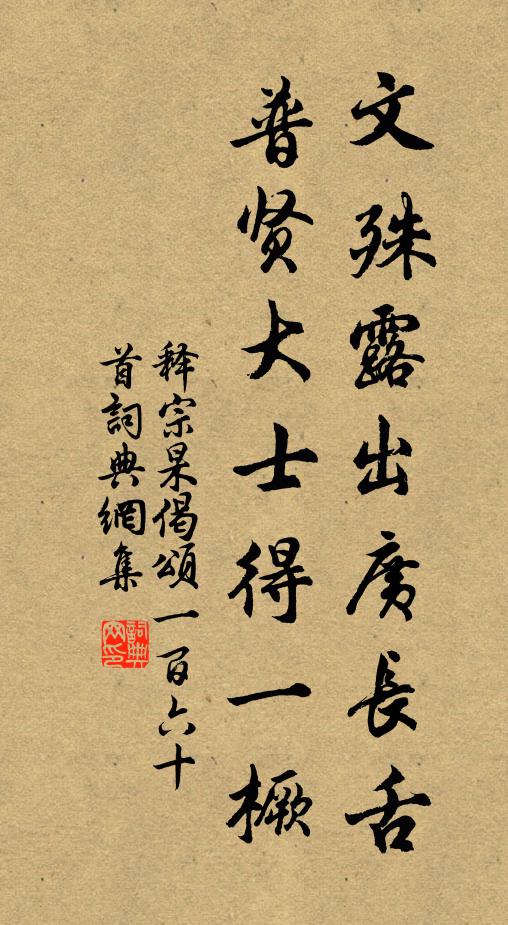 文殊露出廣長舌
普贤大士得一橛
释宗杲偈頌一百六十
首詞典網集
詞典网印